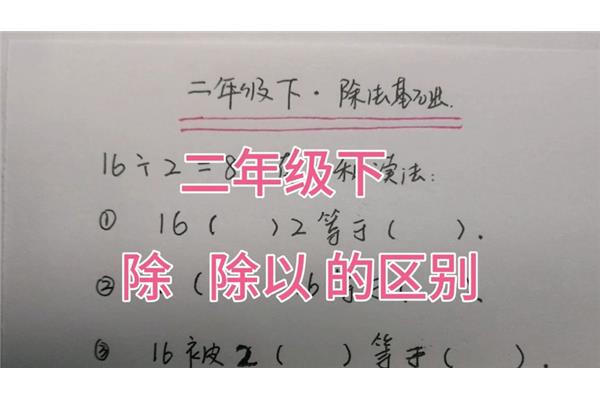 二年级下·除法基础
16÷2=8
读法:
二年级下
① 16( )2等于( ).
除 除以的区别
② (
③ 16被2( )等于( ).